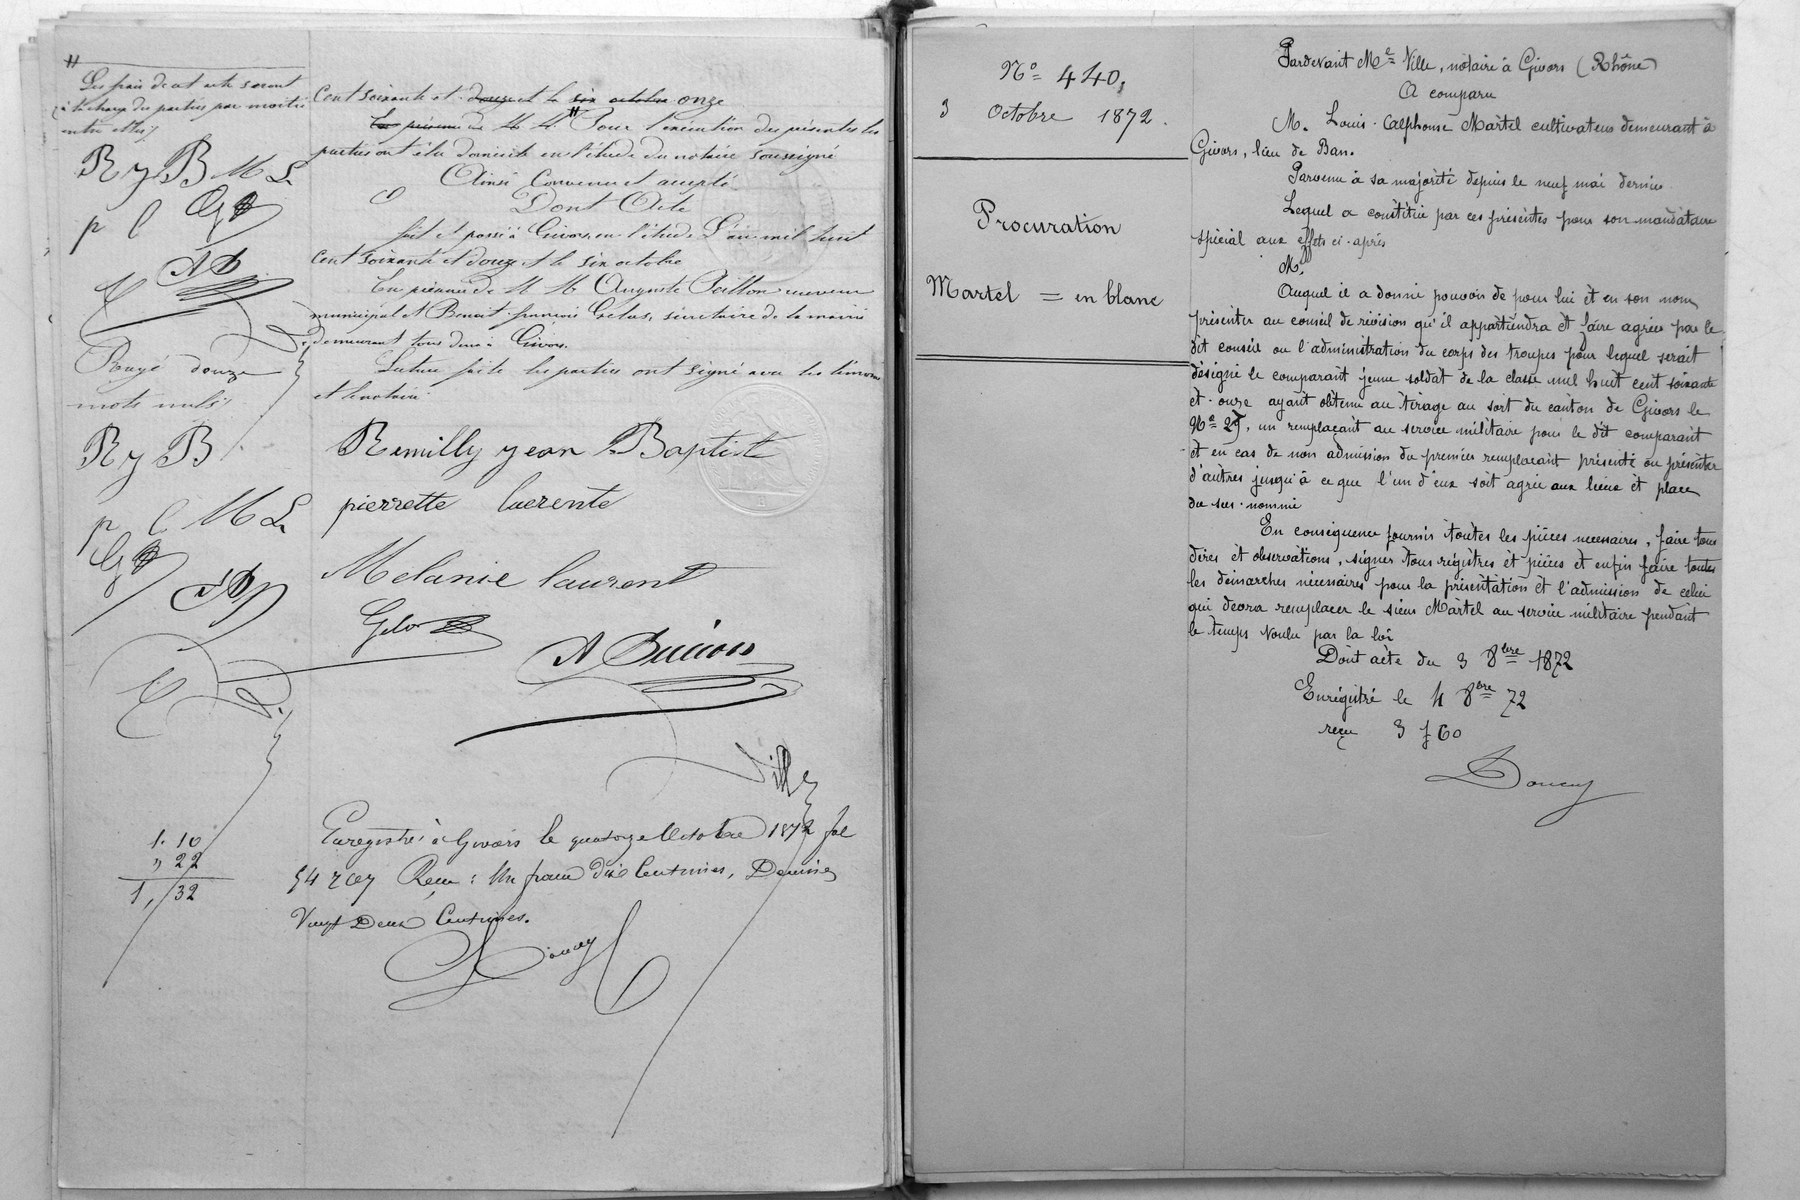 Les frais de cet acte seront
à la charge des parties par moitié
entre elles
R y B M L
p l
Rayé douze
mots nuls
R y B
p l M L
1. 10
" 22
1, 32
Cent soixante et douze et le six octobre onze
En présence de M. M. Pour l'exécution des présentes les
parties ont élu domicile en l'étude du notaire soussigné
Ainsi Convenu et accepté
Dont Acte
fait et passé à Givors, en l'étude L'an mil huit
Cent soixante et douze et le six octobre
En présence de M M Auguste receveur
municipal et Benoit françois Gelas, secrétaire de la mairie
demeurant tous deux à Givors.
Lecture faite les parties ont signé avec les témoins
et le notaire
Remilly jean Baptiste
pierrette laurente
Melanie laurent
Gelas
Ville
Enregistré à Givors le quatorze Octobre 1872 fol
54 Reçu : Un franc dix Centimes, Décimes
Vingt Deux Centimes.
Doucey
N° 440,
3 Octobre 1872.
Procuration
Martel = en blanc
Pardevant Me Ville, notaire à Givors (Rhône)
A comparu
M. Louis-Alphonse Martel cultivateur demeurant à
Givors, lieu de Ban.
Parvenu à sa majorité depuis le neuf mai dernier.
Lequel a constitué par ces présentes pour son mandataire
spécial aux effets ci-après
M.
Auquel il a donné pouvoir de pour lui et en son nom,
présenter au conseil de révision qu'il appartiendra et faire agréer par le
dit conseil ou l'administration du corps des troupes pour lequel serait
désigné le comparant jeune soldat de la classe mil huit cent soixante
et onze ayant obtenu au tirage au sort du canton de Givors le
N° 29, un remplaçant au service militaire pour le dit comparant
et en cas de non admission du premier remplaçant présenté ou présenter
d'autres jusqu'à ce que l'un d'eux soit agréé aux lieux et place
du sus-nommé
En conséquence fournir toutes les pièces nécessaires, faire tous
dires et observations, signer tous régistres et pièces et enfin faire toutes
les démarches nécessaires pour la présentation et l'admission de celui
qui devra remplacer le sieur Martel au service militaire pendant
le temps voulu par la loi
Dont acte du 3 8bre 1872
Enrégistré le 4 8bre 72
reçu 3 f 60
Doucey